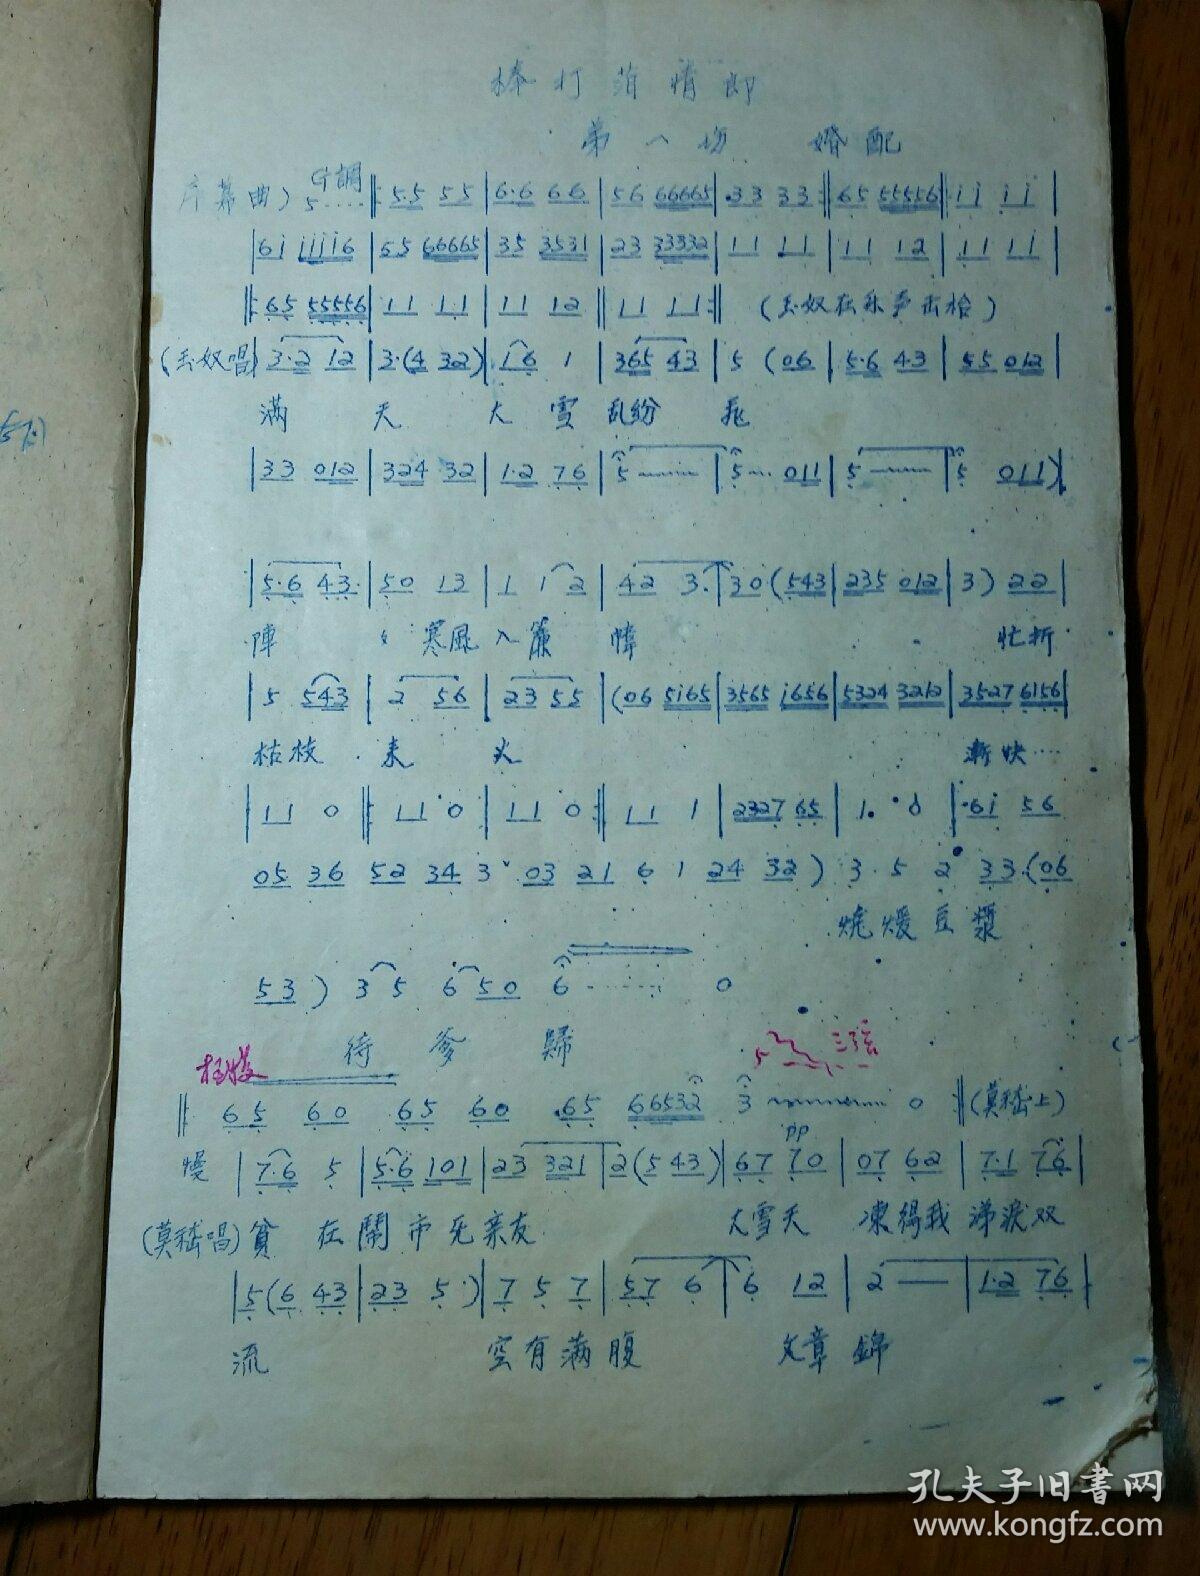 棒打薄情郎
第一场 婚配
序幕曲) G調 5····‖: 5 5 5 5 | 6·6 6 6 | 5 6 66665 | 3 3 3 3 :‖ 6 5 55556 ‖: i i i i |
| 6 i iiii6 | 6 5 66665 | 3 5 3531 | 2 3 33332 | 1 1 1 1 | 1 1 1 2 | 1 1 1 i |
‖: 6 5 55556 | 1 1 1·1 | 1 1 1 2 ‖ 1 1 1 1 :‖ (玉奴在乐声
(玉奴唱) | 3·2 1 2 | 3·(4 3 2) | 1 6 1 | 365 4 3 | 5 (0 6 | 5·6 4 3 | 5 5 012 |
滿 天 大 雪 乱紛 飛
| 3 3 012 | 324 3 2 | 1·2 7 6 | 5 | 5 011 | 5 | 5 011) |
| 5·6 4 3· | 5 0 1 3 | 1 1 2 | 4 2 3· | 3 0·(543 | 235 012 | 3) 2 2 |
陣 々 寒風入簾 幃 忙折
| 5 543 | 2 5 6 | 2 3 5 5 | (06 5i65 | 3565 i656 | 5324 3212 | 3527 6156 |
枯枝 来 火 漸快····
| 1 1 0 ‖: 1 1 0 | 1 1 0 :‖ 1 1 1 | 2327 6 5 | 1· 0 | 6 i 5 6
0 5 3 6 5 2 3 4 3 ˇ 0 3 2 1 6 1 2 4 3 2 ) 3· 5 2 3 3·(0 6
燒煖豆漿
5 3 ) 3 5 6 5 0 6 ······ 0
待 爹 歸
5 三弦
‖: 6 5 6 0 6 5 6 0 6 5 66532 3 0 :‖ (莫稽上)
pp
慢 | 7·6 5 | 5·6 101 | 2 3 321 | 2 (5 4 3) | 6 7 7 0 | 0 7 6 2 | 7·1 7 6 |
(莫稽唱) 貧 在 鬧 市 无亲友 大雪天 凍得我 涕淚双
| 5 (6 4 3 | 2 3 5·) | 7 5 7 | 5 7 6 | 6 1 2 | 2 —— | 1·2 7 6 |
流 空有满腹 文章 錦
孔夫子旧书网
www.kongfz.com